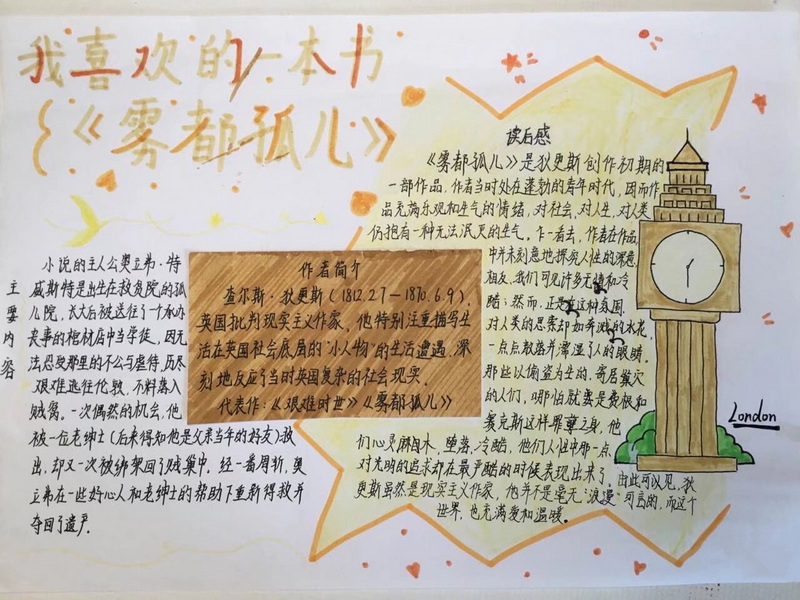 我喜欢的一本书
《雾都孤儿》
主要内容
小说的主人公奥立弗·特
威斯特是出生在救务院的孤
儿院,长大后被送往了一个承办
丧事的棺材店中当学徒,因无
法忍受那里的不公与虐待,历尽
艰难逃往伦敦,不料落入
贼窝。一次偶然的机会,他
被一位老绅士(后来得知他是父亲当年的好友)救
出,却又一次被绑架回了贼巢中,经一番周折,奥
立弗在一些好心人和老绅士的帮助下重新得救并
夺回了遗产。
作者简介
查尔斯·狄更斯(1812.2.7—1870.6.9),
英国批判现实主义作家,他特别注重描写生
活在英国社会底层的“小人物”的生活遭遇,深
刻地反应了当时英国复杂的社会现实。
代表作:《艰难时世》《雾都孤儿》
读后感
《雾都孤儿》是狄更斯创作初期的
一部作品,作者当时处在蓬勃的青年时代,因而作
品充满乐观和生气的情绪,对社会,对人生,对人类
仍抱有一种无法泯灭的生气。乍一看去,作者在作品
中并未刻意地探究人性的深意,
相反,我们可见许多无情和冷
酷;然而,正是在这种氛围,
对人类的思索却如奔涌的水花,
一点点散落并濡湿了人的眼睛。
那些以偷盗为生的,寄居巢穴
的人们,哪怕就要是费根和
赛克斯这样罪孽之身,他
们心灵麻木,堕落,冷酷,他们人性中那一点
对光明的追求却在最严酷的时候表现出来了。由此可以见,狄
更斯虽然是现实主义作家,他并不是毫无“浪漫”可言的,而这个
世界,也充满爱和温暖。
London